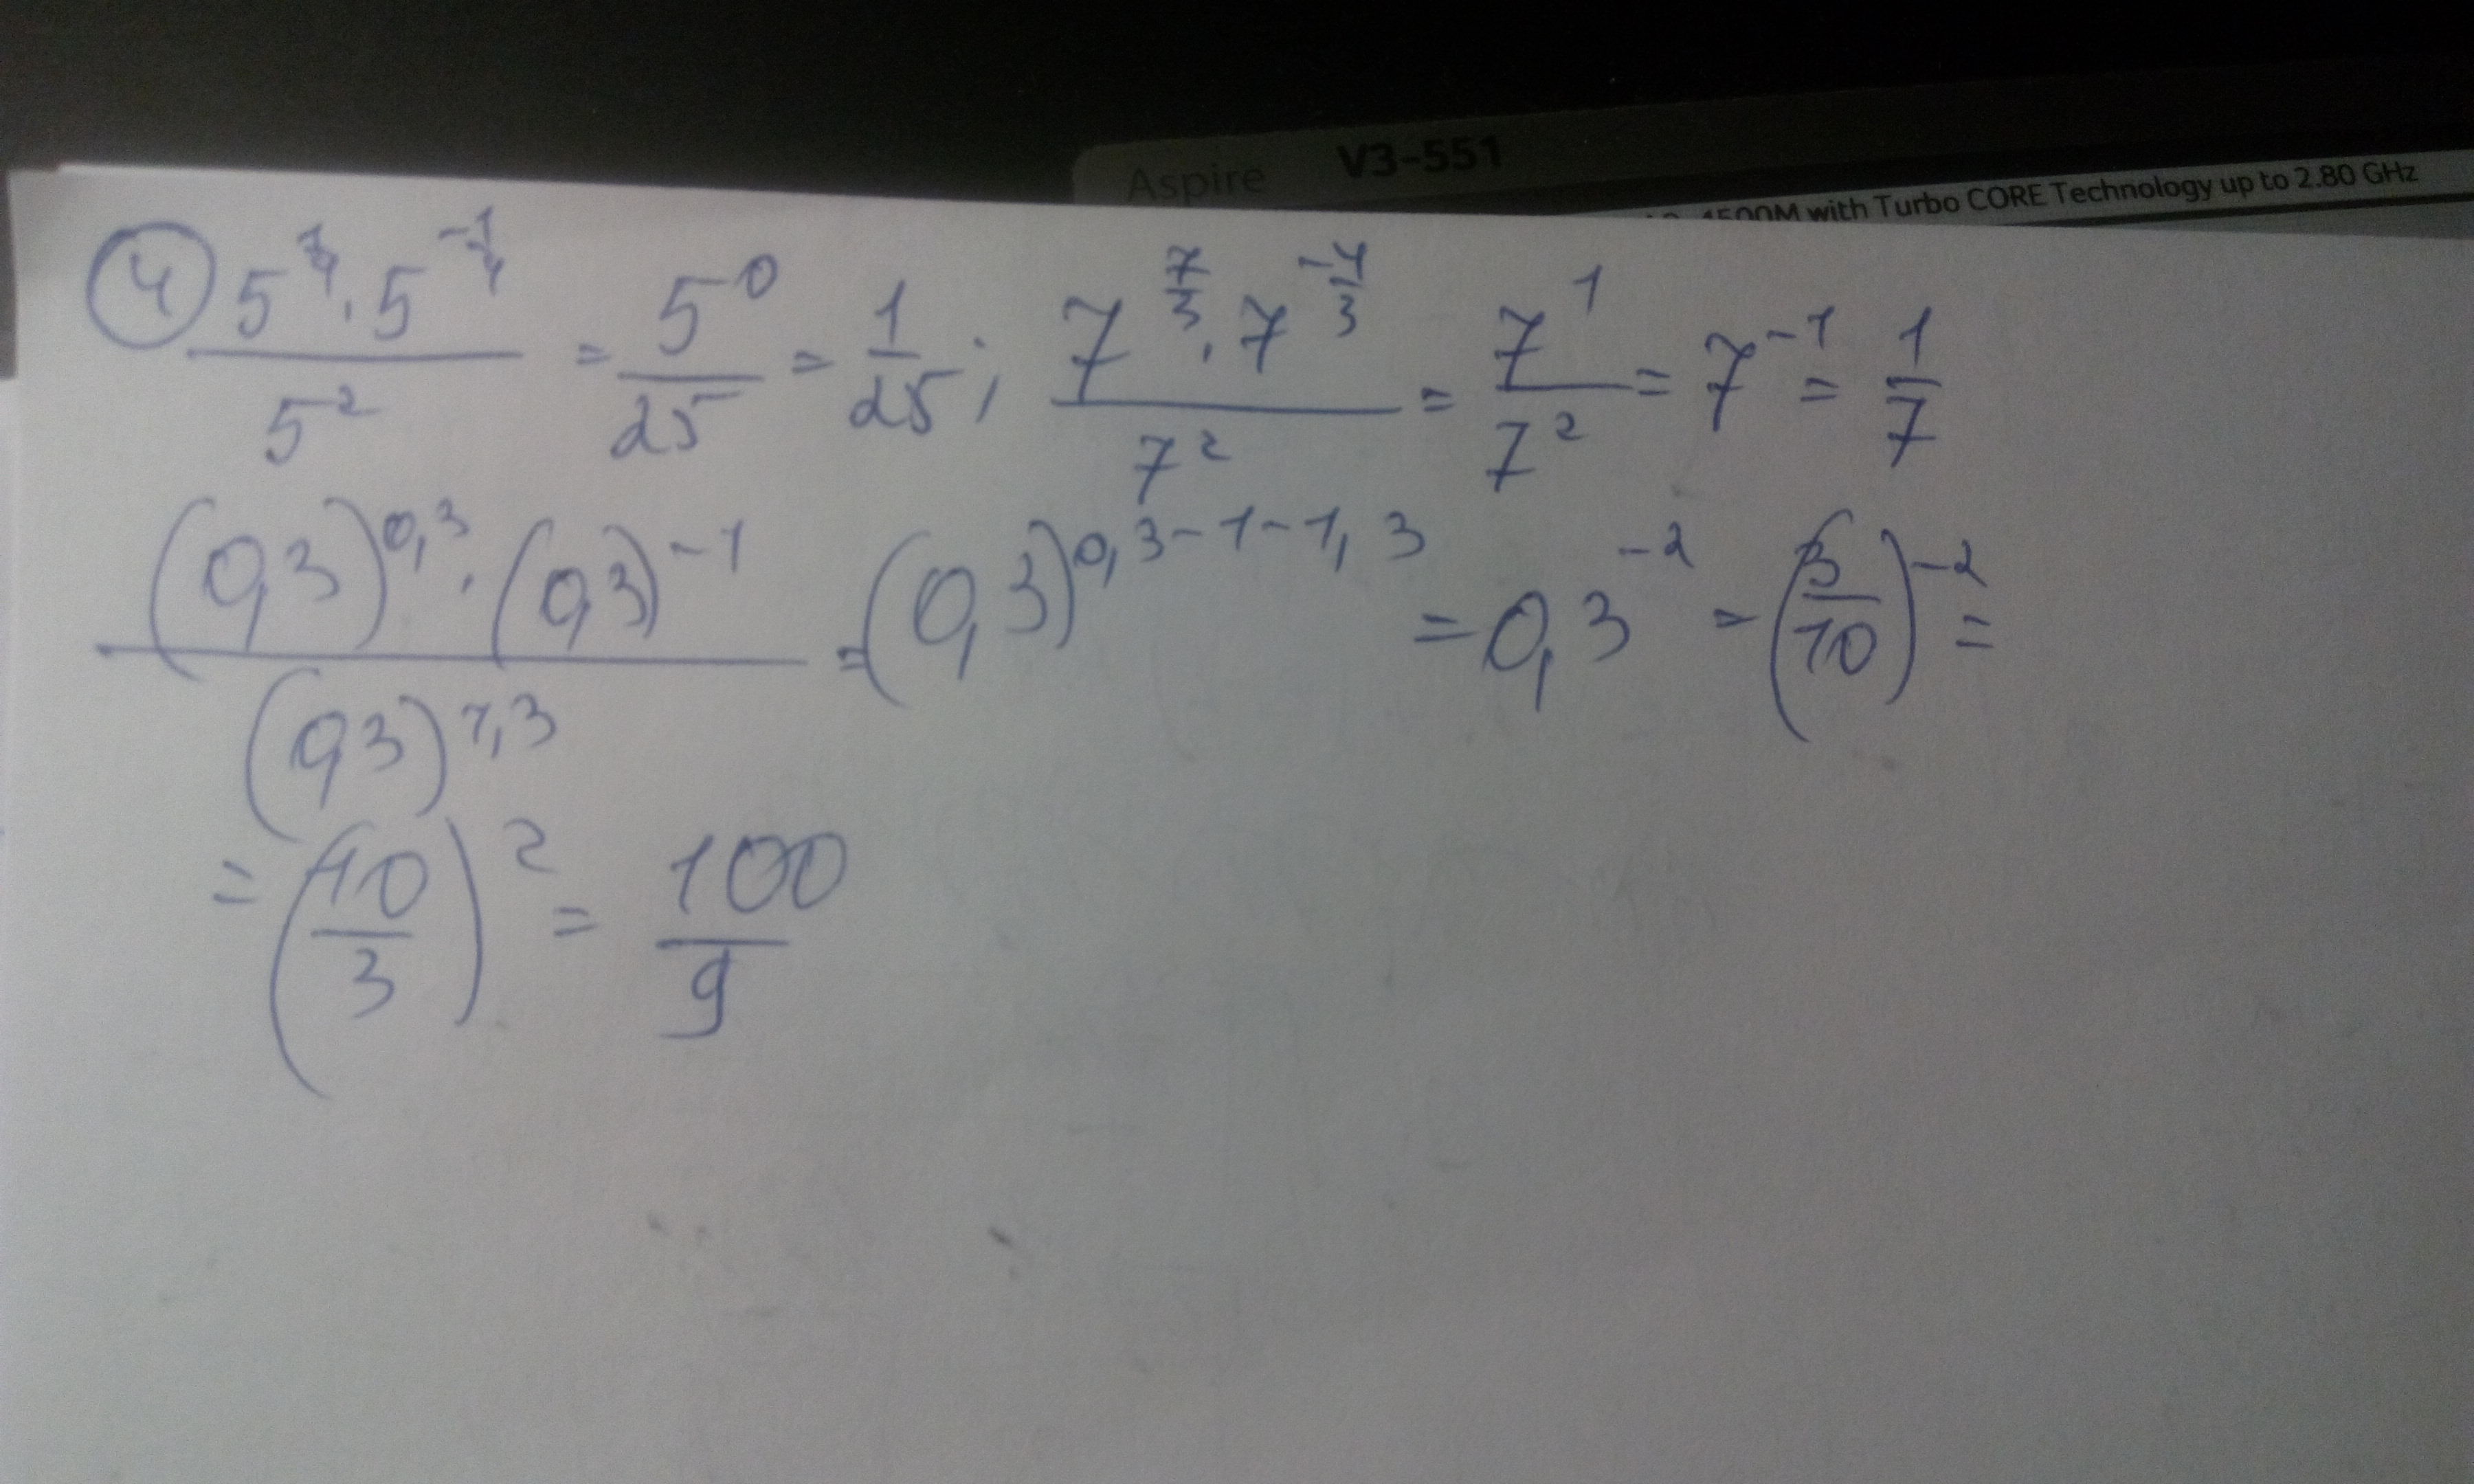 Aspire V3-551
4500M with Turbo CORE Technology up to 2.80 GHz
④ (5^(1/4) · 5^(-1/4)) / 5^2 = 5^0 / 25 = 1/25 ; (7^(7/3) · 7^(-4/3)) / 7^2 = 7^1 / 7^2 = 7^(-1) = 1/7
((0,3)^(0,3) · (0,3)^(-1)) / (0,3)^(1,3) = (0,3)^(0,3-1-1,3) = 0,3^(-2) = (3/10)^(-2) =
= (10/3)^2 = 100/9